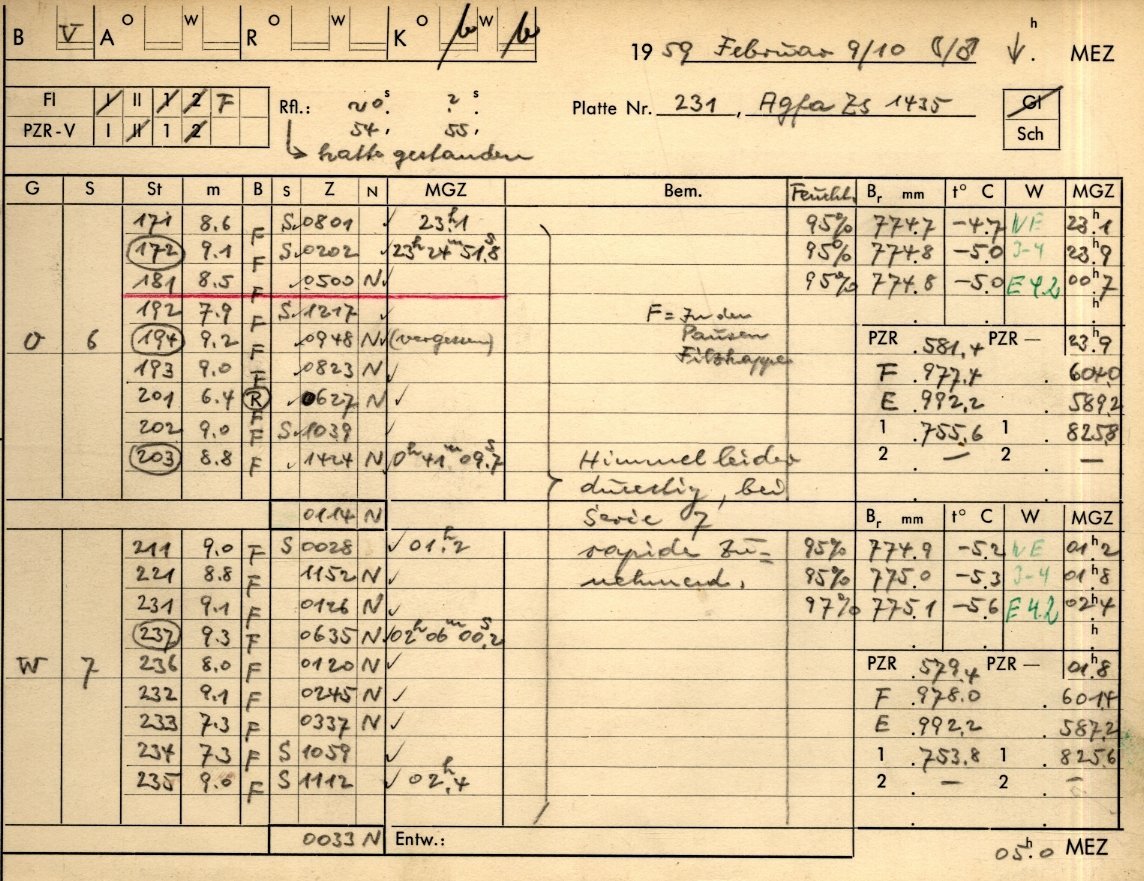 B V A O W R O W K O W
19 59 Februar 9/10 h . MEZ
Fl I II 1 2 F
PZR-V I II 1 2
Rfl.: ~0s ? s
54. 55.
hatte gestanden
Platte Nr. 231, Agfa Zs 1435
Gl
Sch
G S St m B S Z N MGZ Bem. Feucht. Br mm t° C W MGZ
171 8.6 F S 0801 ✓ 23h.1 95% 774.7 -4.7 NE 23h.1
172 9.1 F S 0202 ✓ 23h24m51.s8 95% 774.8 -5.0 3-4 23.9
181 8.5 F 0500 N ✓ 95% 774.8 -5.0 E 4.2 00h.7
192 7.9 F S 1217 ✓ F = In den h
O 6 194 9.2 F 0948 N ✓ (vergessen) Pausen PZR .581,4 PZR – 23h.9
193 9.0 F 0823 N ✓ Filzkappe F .977.4 . 604.0
201 6.4 R ✓ 0627 N ✓ E .992,2 . 589.2
202 9.0 F S 1039 ✓ 1 .755.6 1 825.8
203 8.8 F 1424 N 0h41m09.s7 Himmel leider 2 – 2 –
dunstig, bei
0114 N Serie 7 Br mm t° C W MGZ
211 9.0 F S 0028 ✓ 01h.2 rapide Zu- 95% 774.9 -5.2 NE 01h.2
221 8.8 F 1152 N ✓ nehmend. 95% 775.0 -5.3 3-4 01h.8
231 9.1 F 0126 N ✓ 97% 775.1 -5.6 E 4.2 02h.4
237 9.3 F 0635 N ✓ 02h06m00.s2 h
W 7 236 8.0 F 0120 N ✓ PZR .579.4 PZR – 01h.8
232 9.1 F 0245 N ✓ F .978.0 . 601.4
233 7.3 F 0337 N ✓ E .992.2 . 587.2
234 7.3 F S 1059 ✓ 1 .753.8 1 825.6
235 9.0 F S 1112 ✓ 02h.4 2 – 2 –
0033 N Entw.:
05h.0 MEZ